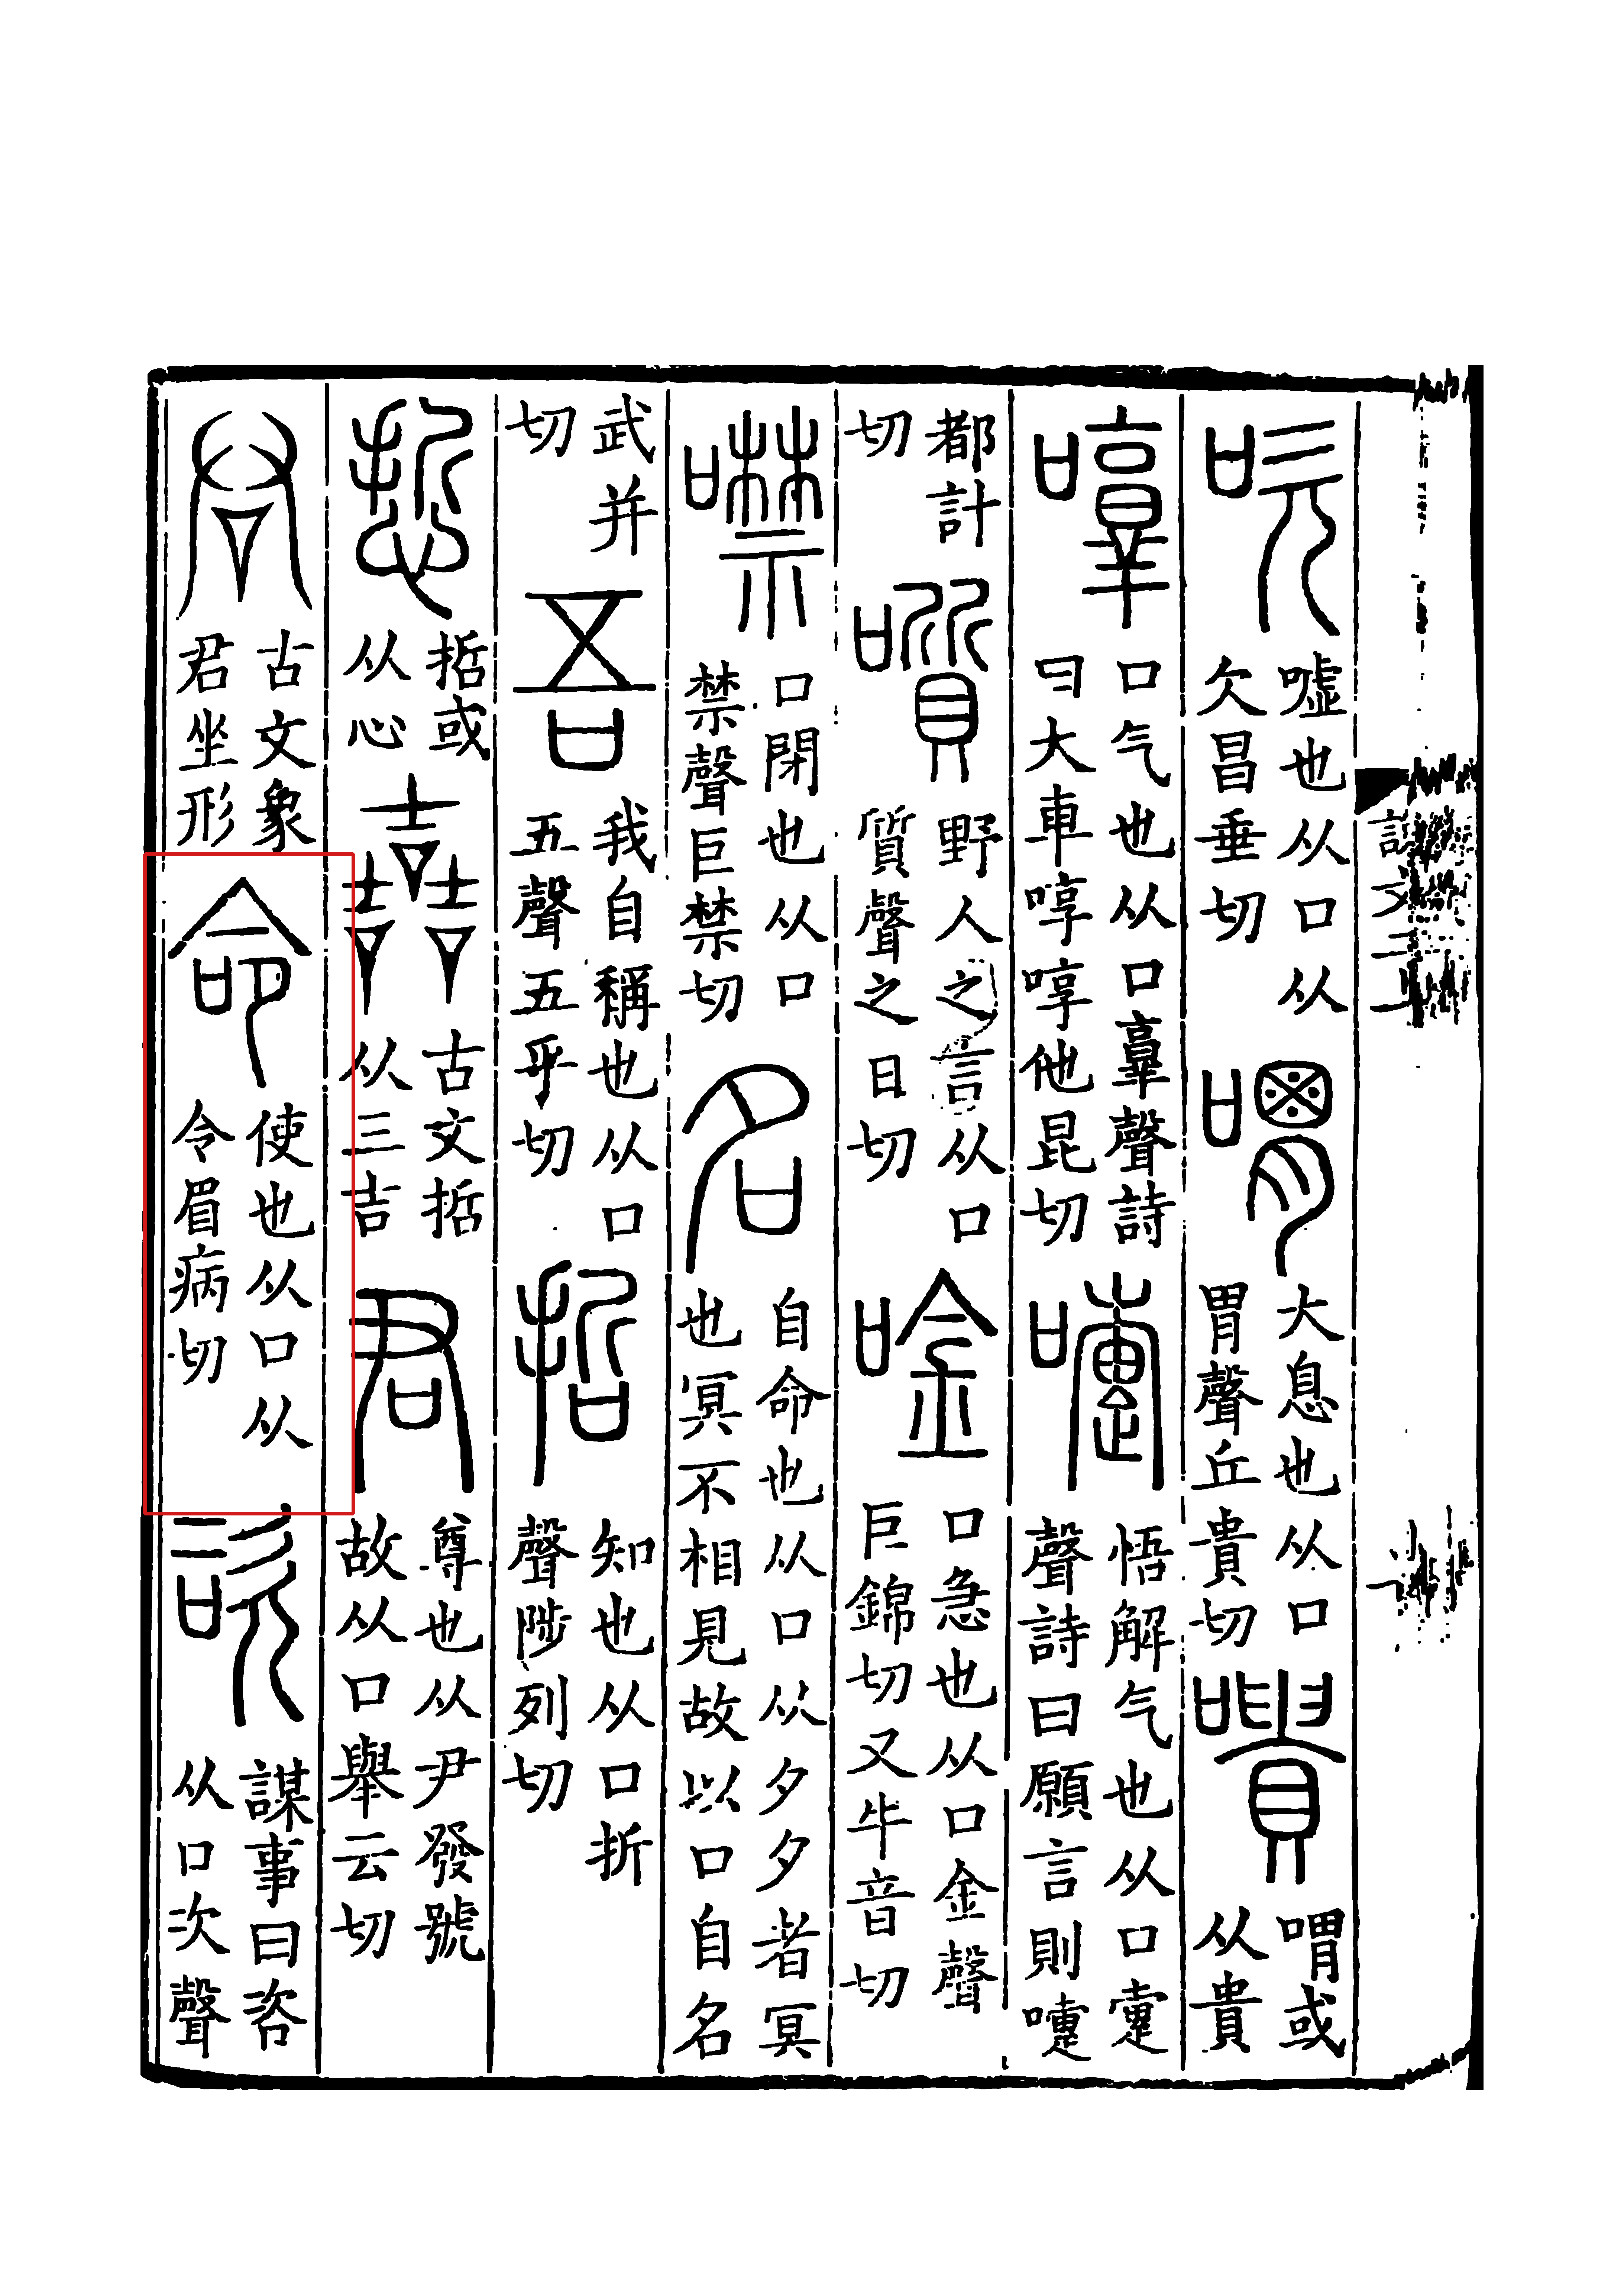 吹 噓也从口从欠昌垂切 喟 大息也从口胃聲丘貴切 嘳 喟或从貴
啍 口气也从口𦎫聲詩曰大車啍啍他昆切 嚏 悟解气也从口疐聲詩曰願言則嚏
都計切 噴 野人之言从口質聲之日切 唫 口急也从口金聲巨錦切又牛音切
噤 口閉也从口禁聲巨禁切 名 自命也从口从夕夕者冥也冥不相見故以口自名
武并切 吾 我自稱也从口五聲五乎切 哲 知也从口折聲陟列切
悊 哲或从心 嚞 古文哲从三吉 君 尊也从尹發號故从口舉云切
𠱭 古文象君坐形 命 使也从口从令眉病切 咨 謀事曰咨从口次聲
說文二上